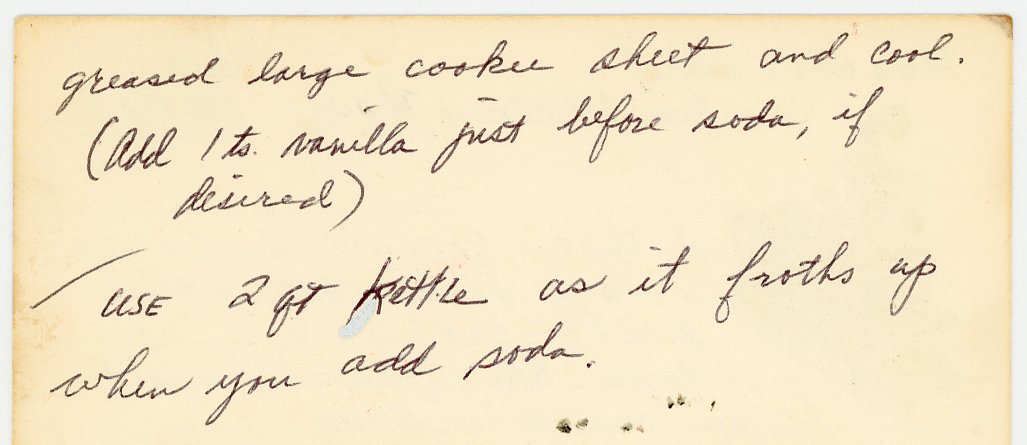 greased large cookie sheet and cool.
(Add 1 ts. vanilla just before soda, if
desired)
USE 2 qt kettle as it froths up
when you add soda.